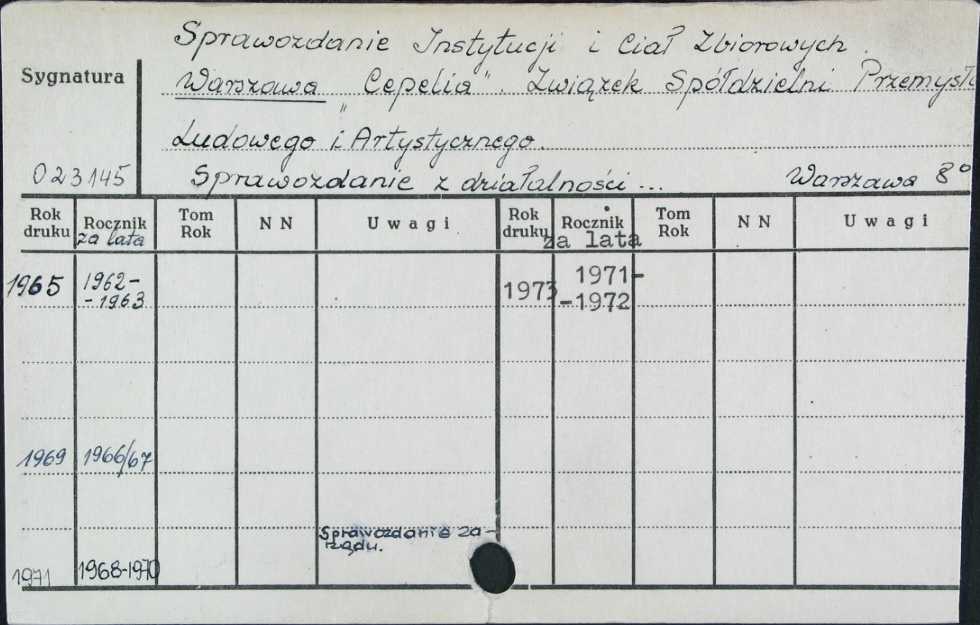 Sprawozdanie Instytucji i Ciał Zbiorowych.
Sygnatura
Warszawa „Cepelia". Związek Spółdzielni Przemysłu
Ludowego i Artystycznego.
023145
Sprawozdanie z działalności... Warszawa 8°
Rok druku Rocznik za lata Tom Rok N N Uwagi Rok druku Rocznik za lata Tom Rok N N Uwagi
1965 1962-
-1963
1973 1971-
-1972
1969 1966/67
Sprawozdanie Za-
rządu.
1971 1968-1970